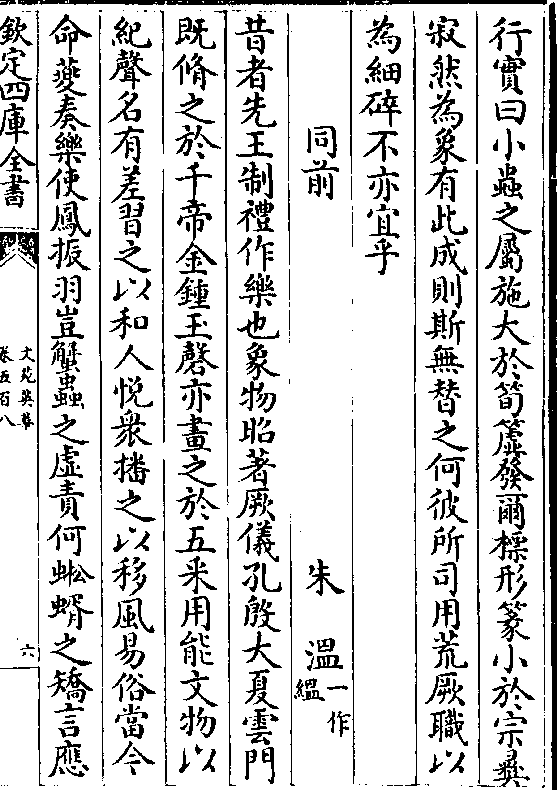 行實曰小蟲之屬施大於筍簴發爾標形篆小於宗彞
寂然為象有此成則斯無替之何彼所司用荒厥職以
為細碎不亦宜乎
同前 朱溫一作縕
昔者先王制禮作樂也象物昭著厥儀孔殷大夏雲門
既脩之於千帝金鍾玉磬亦畫之於五采用能文物以
紀聲名有差習之以和人悅衆播之以移風易俗當今
命夔奏樂使鳳振羽豈蟹蟲之虛責何蜙蝑之矯言應
欽定四庫全書
文苑英華
卷五百八
六